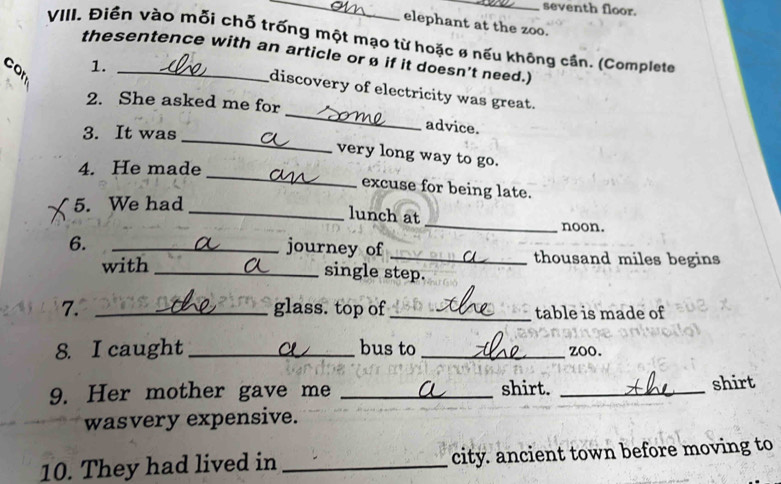 seventh floor.
an elephant at the zoo.
VIII. Điền vào mỗi chỗ trống một mạo từ hoặc ø nếu không cần. (Complete
thesentence with an article or ø if it doesn't need.)
1. the discovery of electricity was great.
2. She asked me for some advice.
3. It was a very long way to go.
4. He made an excuse for being late.
5. We had ____ lunch at ____ noon.
6. a journey of a thousand miles begins
with a single step.
7. the glass. top of the table is made of
8. I caught a bus to the zoo.
9. Her mother gave me a shirt. the shirt
wasvery expensive.
10. They had lived in ____ city. ancient town before moving to